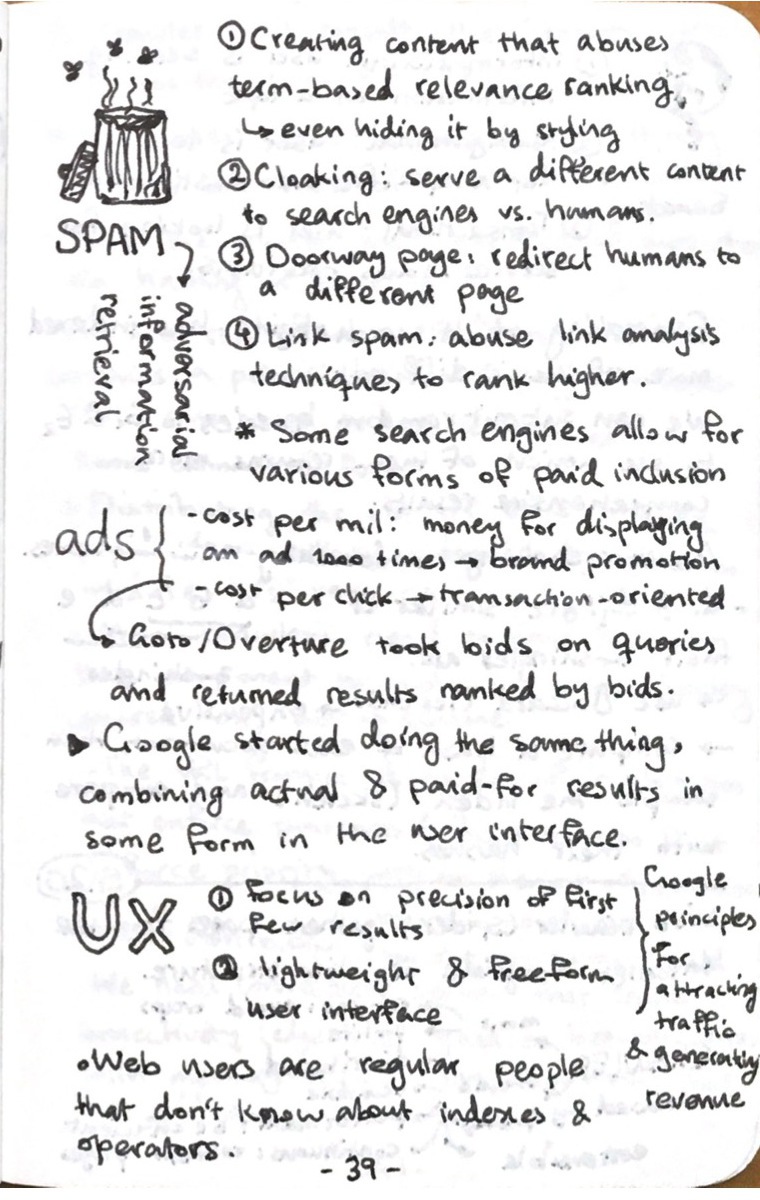 ① Creating content that abuses
term-based relevance ranking,
↳ even hiding it by styling
② Cloaking: serve a different content
to search engines vs. humans.
SPAM
adversarial
information
retrieval
③ Doorway page: redirect humans to
a different page
④ Link spam: abuse link analysis
techniques to rank higher.
* Some search engines allow for
various forms of paid inclusion
ads
- cost per mil: money for displaying
an ad 1000 times → brand promotion
- cost per click → transaction-oriented
↳ Goto/Overture took bids on queries
and returned results ranked by bids.
▶ Google started doing the same thing,
combining actual & paid-for results in
some form in the user interface.
UX
① focus on precision of first
few results
② lightweight & freeform
user interface
Google
principles
for
attracting
traffic
& generating
revenue
• Web users are regular people
that don't know about indexes &
operators.
- 39 -